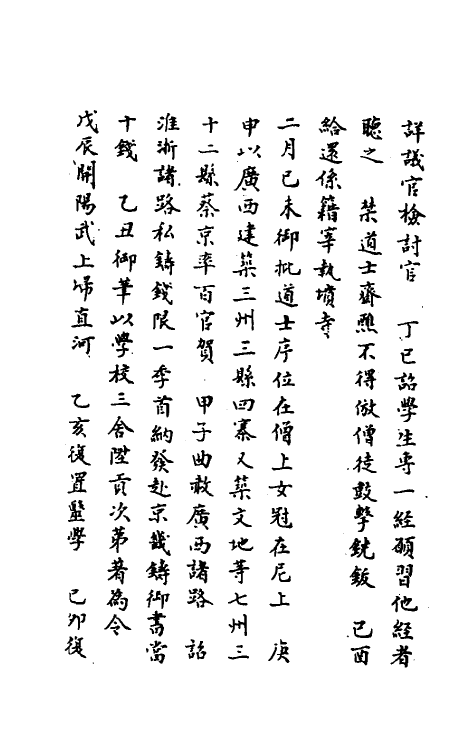 詳議官檢討官　丁巳詔學生專一經願習他經者
聽之　禁道士齋醮不得倣僧徒鼓擊銑鈸　己酉
給還係籍宰執墳寺
二月己未御批道士序位在僧上女冠在尼上　庚
申以廣西建築三州三縣四寨又築文地等七州三
十二縣蔡京率百官賀　甲子曲赦廣西諸路　詔
淮浙諸路私鑄錢限一季首納發赴京畿鑄御書當
十錢　乙丑御筆以學校三舍陞貢次第著為令
戊辰開陽武上埽直河　乙亥復置醫學　己卯復